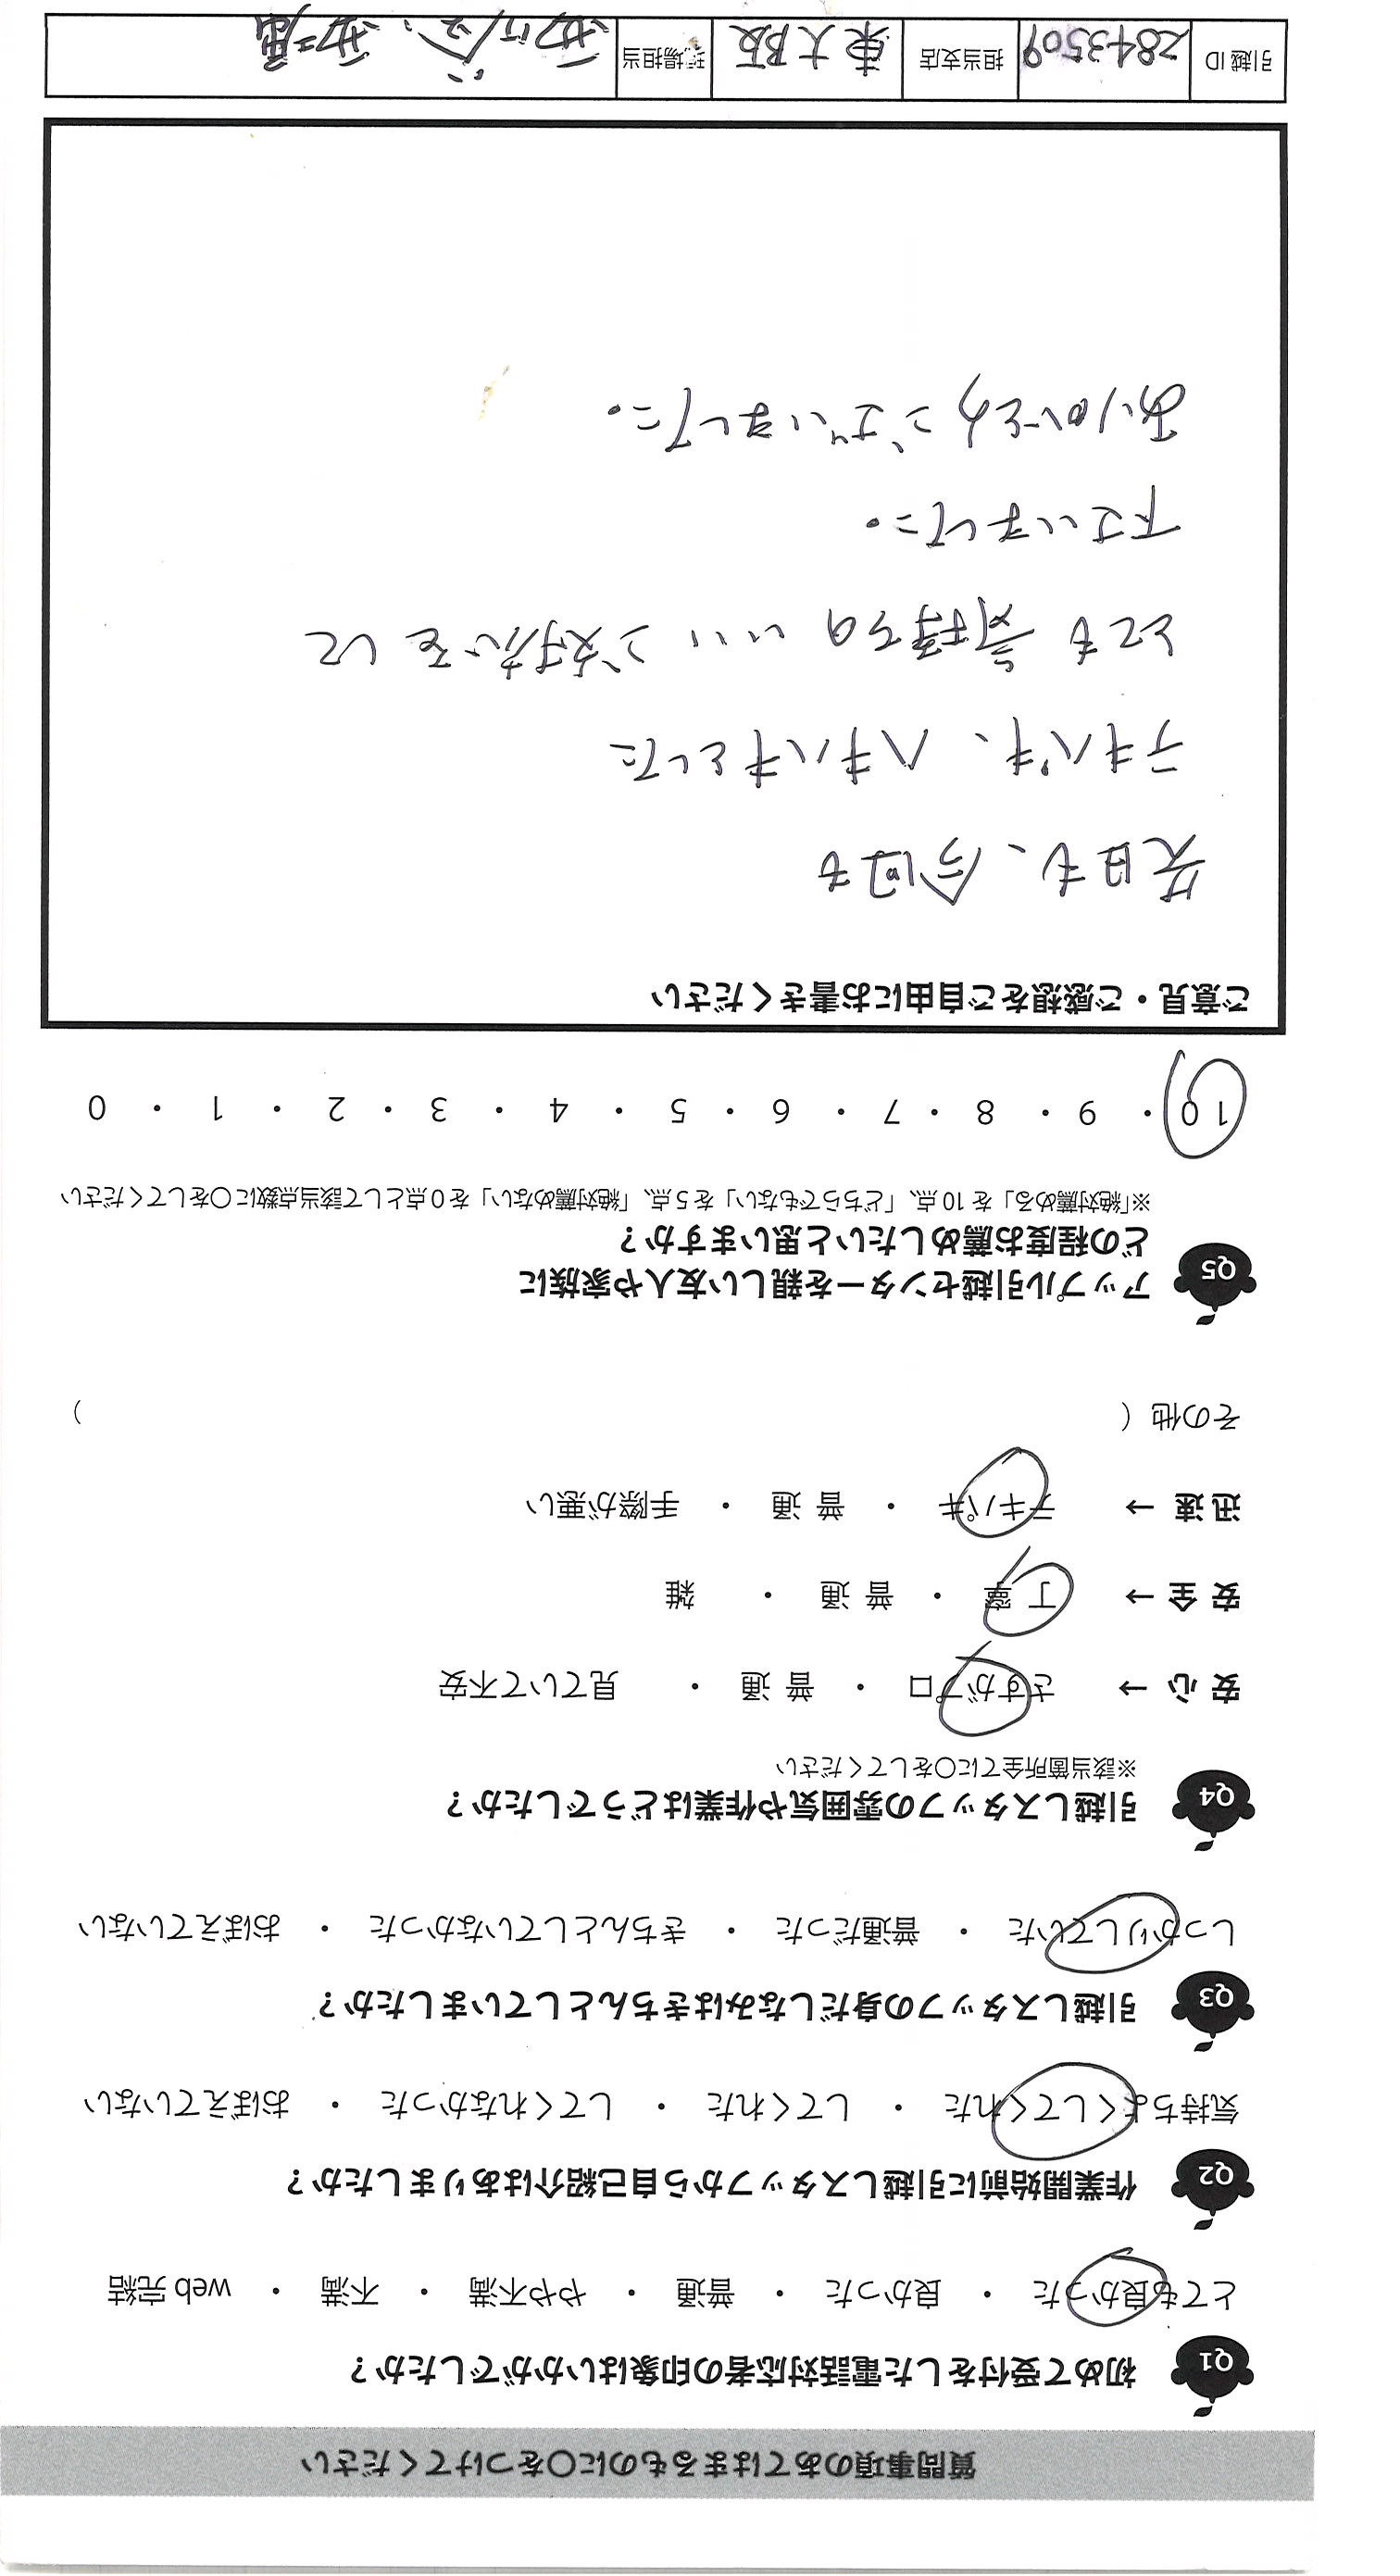 質問事項のあてはまるものに○をつけてください
Q1 初めて受付をした電話対応者の印象はいかがでしたか？
とても良かった ・ 良かった ・ 普通 ・ やや不満 ・ 不満 ・ web 完結
Q2 作業開始前に引越しスタッフから自己紹介はありましたか？
気持ちよくしてくれた ・ してくれた ・ してくれなかった ・ おぼえていない
Q3 引越しスタッフの身だしなみはきちんとしていましたか？
しっかりしていた ・ 普通だった ・ きちんとしていなかった ・ おぼえていない
Q4 引越しスタッフの雰囲気や作業はどうでしたか？
※該当箇所全てに○をしてください
安心 → さすがプロ ・ 普通 ・ 見ていて不安
安全 → 丁寧 ・ 普通 ・ 雑
迅速 → テキパキ ・ 普通 ・ 手際が悪い
その他（ ）
Q5 アップル引越センターを親しい友人や家族に
どの程度お薦めしたいと思いますか？
※「絶対薦める」を 10 点、「どちらでもない」を 5 点、「絶対薦めない」を 0 点として該当点数に○をしてください
10 ・ 9 ・ 8 ・ 7 ・ 6 ・ 5 ・ 4 ・ 3 ・ 2 ・ 1 ・ 0
ご意見・ご感想をご自由にお書きください
先日も、今回も
テキパキ、ハキハキとした
とても気持ちのいいご対応をして
下さいました。
ありがとうございました。
引越 ID 2843509 担当支店 東大阪 現場担当